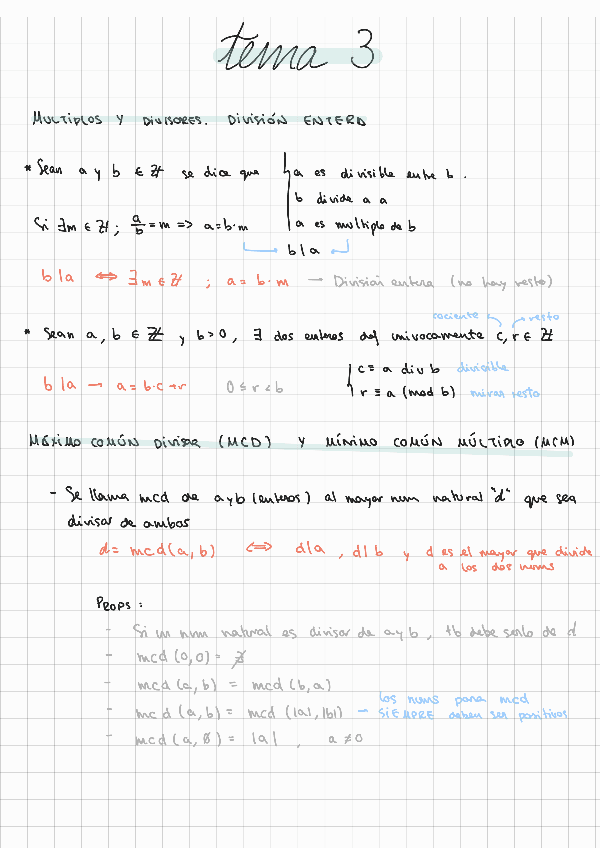 tema 3
MULTIPLOS Y DIVISORES. DIVISIÓN ENTERA
* Sean a y b ∈ ℤ se dice que
a es divisible entre b.
b divide a a
a es multiplo de b
Si ∃m ∈ ℤ ; a/b = m => a = b·m
b|a
b|a <=> ∃m ∈ ℤ ; a = b·m → División entera (no hay resto)
cociente resto
* Sean a, b ∈ ℤ y b>0, ∃ dos enteros def univocamente c, r ∈ ℤ
c ≡ a div b divisible
b|a → a = b·c + r 0 ≤ r < b
r ≡ a (mod b) mirar resto
MÁXIMO COMÚN DIVISOR (MCD) Y MÍNIMO COMÚN MÚLTIPLO (MCM)
- Se llama mcd de a y b (enteros) al mayor num natural "d" que sea
divisor de ambos
d = mcd(a,b) <=> d|a , d|b y d es el mayor que divide
a los dos nums
PROPS :
- Si un num natural es divisor de a y b , tb debe serlo de d
- mcd (0,0) = ∄
- mcd (a,b) = mcd (b,a)
los nums para mcd
- mcd (a,b) = mcd (|a|,|b|) → SIEMPRE deben ser positivos
- mcd (a,0) = |a| , a ≠ 0